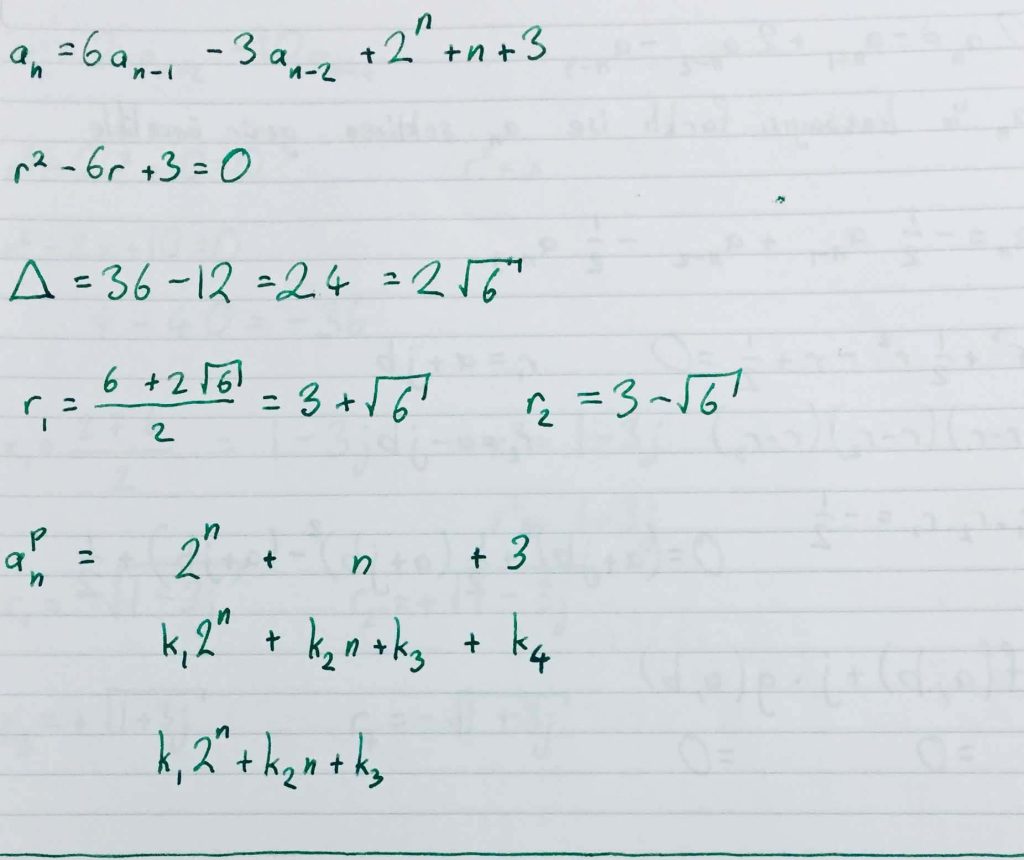 aₙ = 6aₙ₋₁ - 3aₙ₋₂ + 2ⁿ + n + 3
r² - 6r + 3 = 0
Δ = 36 - 12 = 24 = 2√6
r₁ = (6 + 2√6)/2 = 3 + √6 r₂ = 3 - √6
aₙᵖ = 2ⁿ + n + 3
k₁2ⁿ + k₂n + k₃ + k₄
k₁2ⁿ + k₂n + k₃